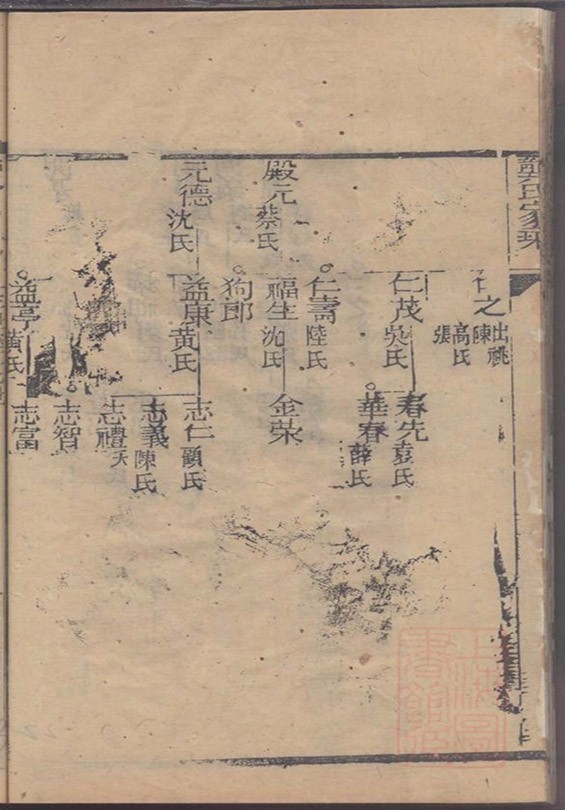 氏家乘
殿元 蔡氏
元德 沈氏
之 出祧 陳 高氏 張
仁茂 吳氏
仁壽 陸氏
福生 沈氏
狗郎
益康 黄氏
益亭 黄氏
春先 袁氏
華春 薛氏
金榮
志仁 顧氏
志義 陳氏
志禮 夭
志智
志富